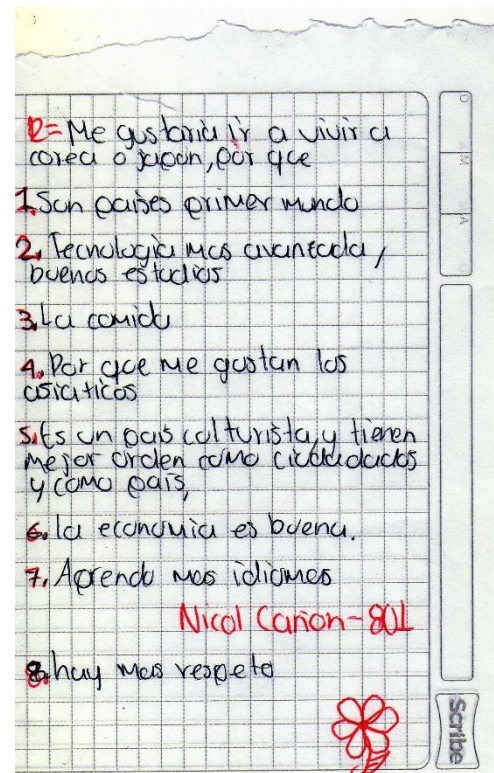 R= Me gustaria ir a vivir a
corea o japon, por que
1. Son paises primer mundo
2. Tecnologia mas avanzada,
buenos estudios
3. La comida
4. Por que me gustan los
asiaticos
5. Es un pais culturista, y tienen
mejor orden como ciudadados
y como país,
6. la economia es buena.
7. Aprendo mas idiomas
Nicol Cañon-801
8. hay mas respeto
D
M
A
Scribe